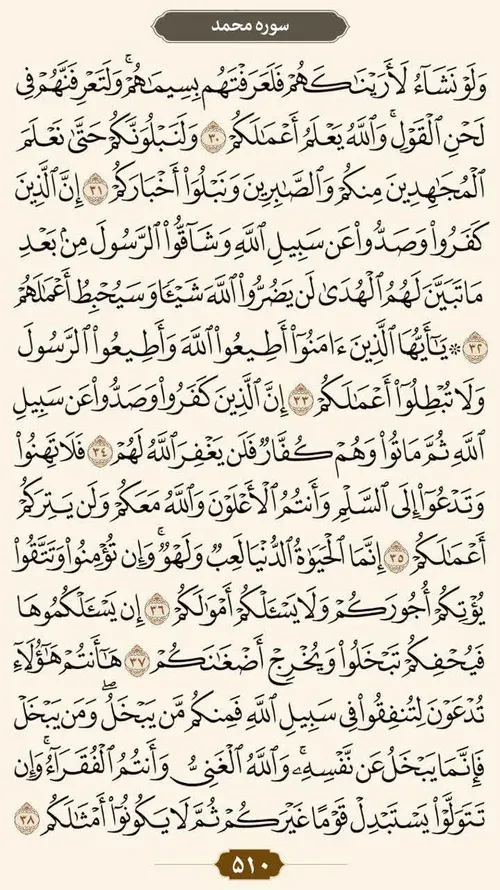 سوره محمد
وَلَوْ نَشَآءُ لَأَرَيْنَٰكَهُمْ فَلَعَرَفْتَهُم بِسِيمَٰهُمْ ۚ وَلَتَعْرِفَنَّهُمْ فِى
لَحْنِ ٱلْقَوْلِ ۚ وَٱللَّهُ يَعْلَمُ أَعْمَٰلَكُمْ ٣٠ وَلَنَبْلُوَنَّكُمْ حَتَّىٰ نَعْلَمَ
ٱلْمُجَٰهِدِينَ مِنكُمْ وَٱلصَّٰبِرِينَ وَنَبْلُوَا۟ أَخْبَارَكُمْ ٣١ إِنَّ ٱلَّذِينَ
كَفَرُوا۟ وَصَدُّوا۟ عَن سَبِيلِ ٱللَّهِ وَشَآقُّوا۟ ٱلرَّسُولَ مِنۢ بَعْدِ
مَا تَبَيَّنَ لَهُمُ ٱلْهُدَىٰ لَن يَضُرُّوا۟ ٱللَّهَ شَيْـًٔا وَسَيُحْبِطُ أَعْمَٰلَهُمْ
٣٢ ۞ يَٰٓأَيُّهَا ٱلَّذِينَ ءَامَنُوٓا۟ أَطِيعُوا۟ ٱللَّهَ وَأَطِيعُوا۟ ٱلرَّسُولَ
وَلَا تُبْطِلُوٓا۟ أَعْمَٰلَكُمْ ٣٣ إِنَّ ٱلَّذِينَ كَفَرُوا۟ وَصَدُّوا۟ عَن سَبِيلِ
ٱللَّهِ ثُمَّ مَاتُوا۟ وَهُمْ كُفَّارٌ فَلَن يَغْفِرَ ٱللَّهُ لَهُمْ ٣٤ فَلَا تَهِنُوا۟
وَتَدْعُوٓا۟ إِلَى ٱلسَّلْمِ وَأَنتُمُ ٱلْأَعْلَوْنَ وَٱللَّهُ مَعَكُمْ وَلَن يَتِرَكُمْ
أَعْمَٰلَكُمْ ٣٥ إِنَّمَا ٱلْحَيَوٰةُ ٱلدُّنْيَا لَعِبٌ وَلَهْوٌ ۚ وَإِن تُؤْمِنُوا۟ وَتَتَّقُوا۟
يُؤْتِكُمْ أُجُورَكُمْ وَلَا يَسْـَٔلْكُمْ أَمْوَٰلَكُمْ ٣٦ إِن يَسْـَٔلْكُمُوهَا
فَيُحْفِكُمْ تَبْخَلُوا۟ وَيُخْرِجْ أَضْغَٰنَكُمْ ٣٧ هَٰٓأَنتُمْ هَٰٓؤُلَآءِ
تُدْعَوْنَ لِتُنفِقُوا۟ فِى سَبِيلِ ٱللَّهِ فَمِنكُم مَّن يَبْخَلُ ۖ وَمَن يَبْخَلْ
فَإِنَّمَا يَبْخَلُ عَن نَّفْسِهِۦ ۚ وَٱللَّهُ ٱلْغَنِىُّ وَأَنتُمُ ٱلْفُقَرَآءُ ۚ وَإِن
تَتَوَلَّوْا۟ يَسْتَبْدِلْ قَوْمًا غَيْرَكُمْ ثُمَّ لَا يَكُونُوٓا۟ أَمْثَٰلَكُم ٣٨
۵۱۰